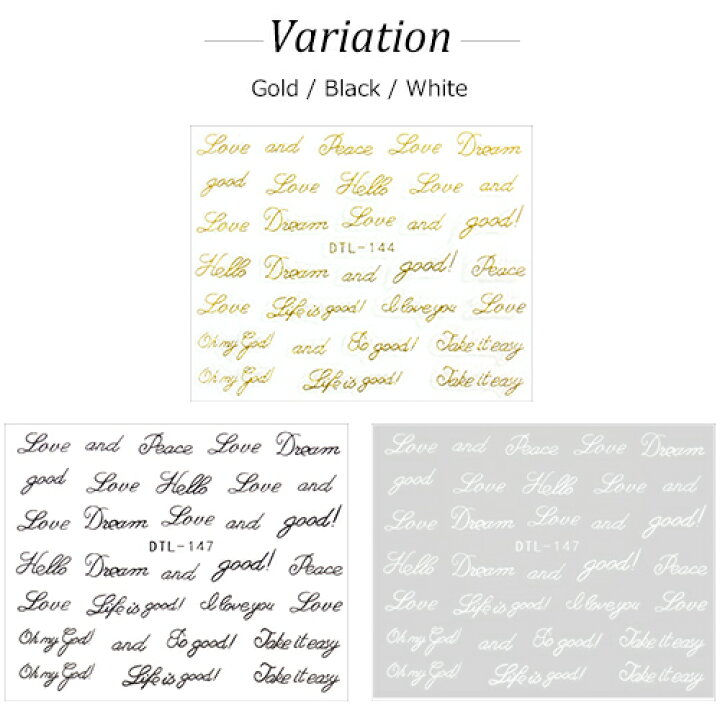 Variation
Gold / Black / White
Love and Peace Love Dream
good Love Hello Love and
Love Dream Love and good!
DTL-144
Hello Dream and good! Peace
Love Life is good! I love you Love
Oh my God! and So good! Take it easy
Oh my God! Life is good! Take it easy
Love and Peace Love Dream
good Love Hello Love and
Love Dream Love and good!
DTL-147
Hello Dream and good! Peace
Love Life is good! I love you Love
Oh my God! and So good! Take it easy
Oh my God! Life is good! Take it easy
Love and Peace Love Dream
good Love Hello Love and
Love Dream Love and good!
DTL-147
Hello Dream and good! Peace
Love Life is good! I love you Love
Oh my God! and So good! Take it easy
Oh my God! Life is good! Take it easy